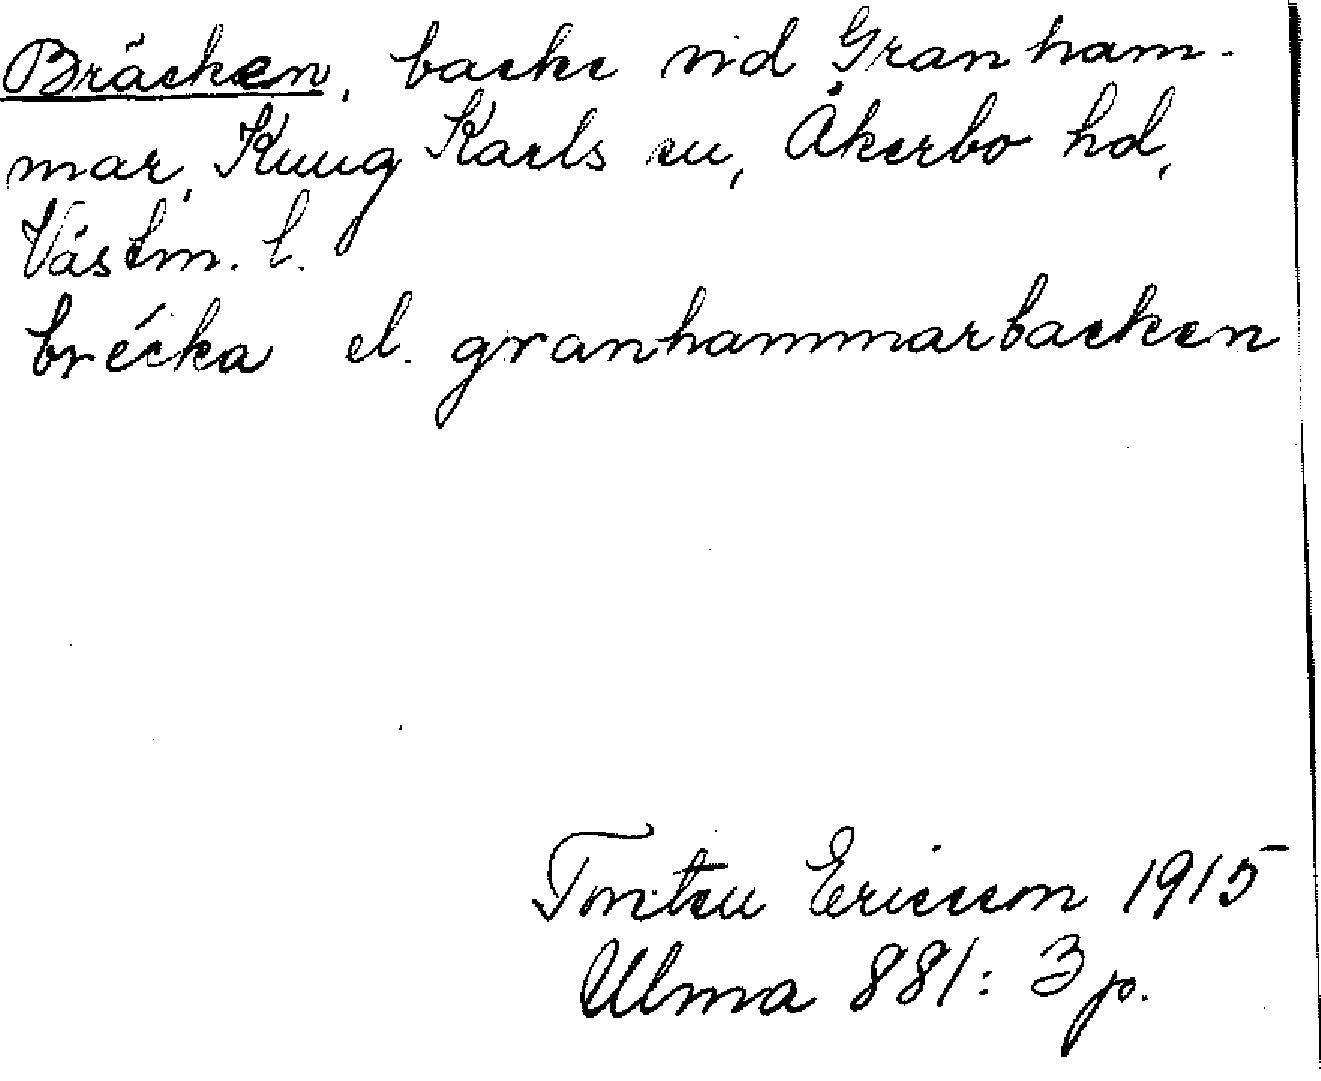 Bräcken, backe vid Granham-
mar, Kung Karls sn, Åkerbo hd,
Västm. l.
brécka el. granhammarbacken
Torsten Ericsson 1915
Ulma 881: 3 p.